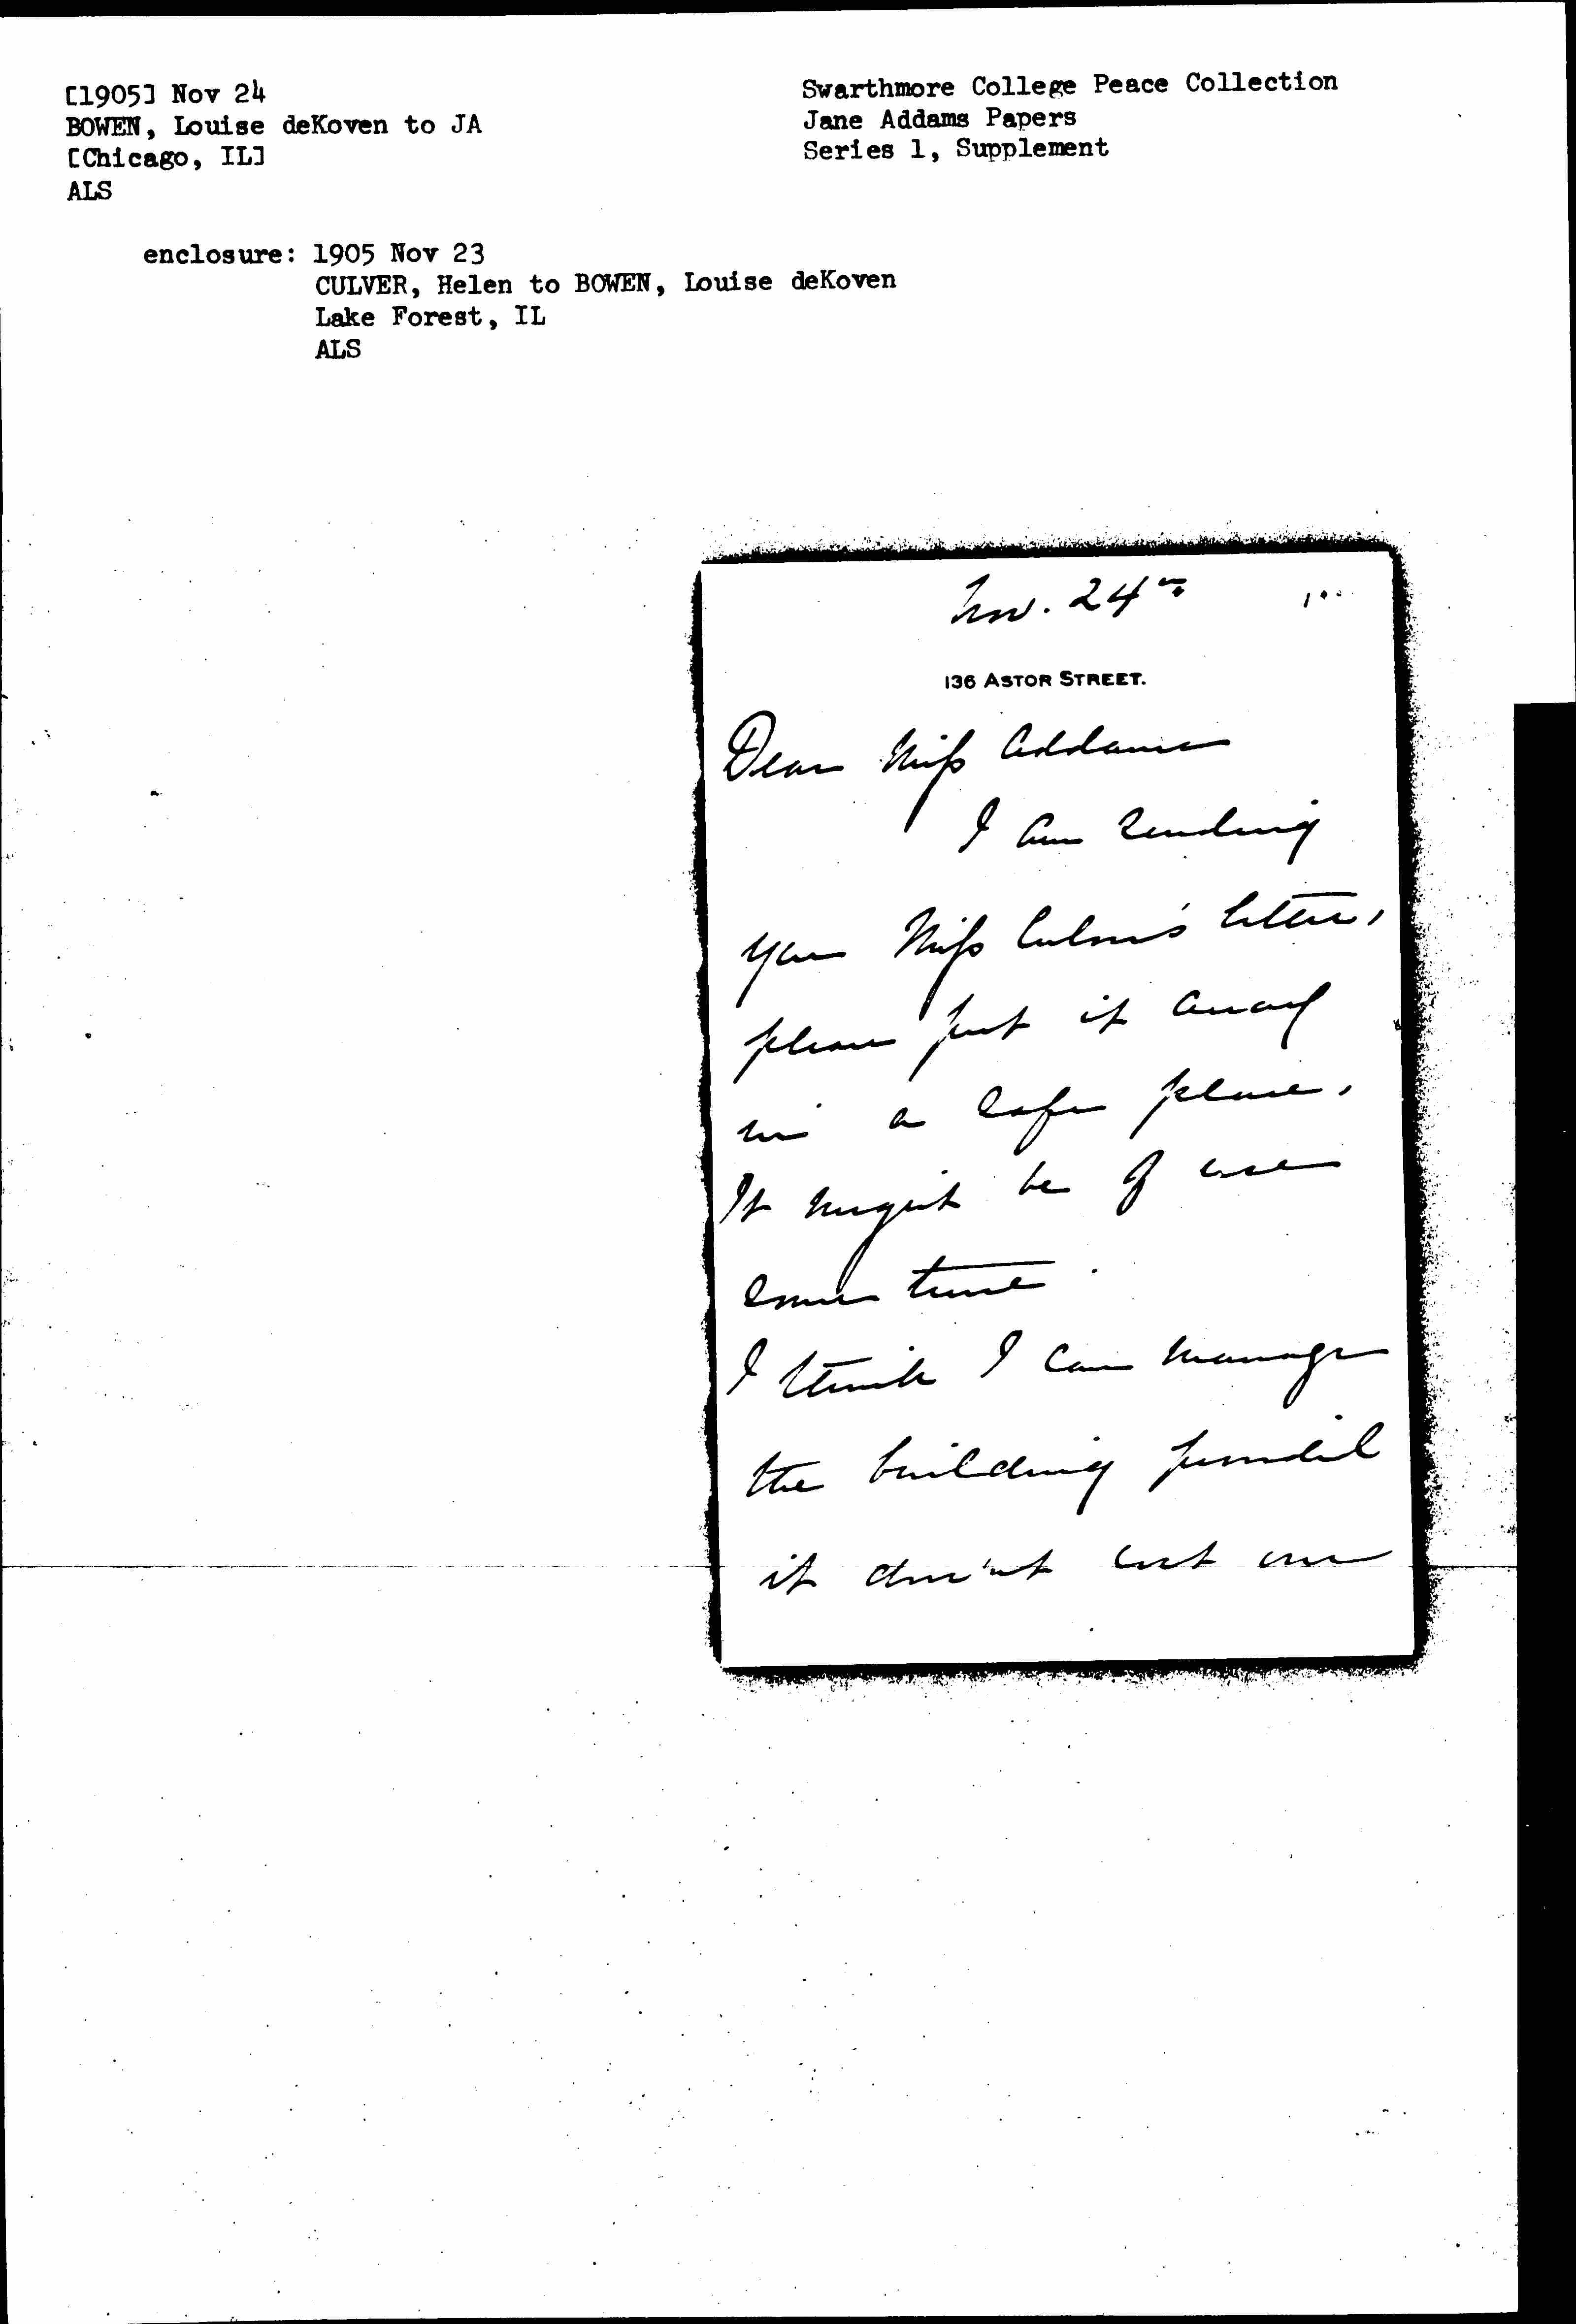 [1905] Nov 24
BOWEN, Louise deKoven to JA
[Chicago, IL]
ALS
Swarthmore College Peace Collection
Jane Addams Papers
Series 1, Supplement
enclosure: 1905 Nov 23
CULVER, Helen to BOWEN, Louise deKoven
Lake Forest, IL
ALS
Nov. 24th
136 ASTOR STREET.
Dear Miss Addams
I am sending
you Miss Culver's letter,
please put it away
in a safe place.
It might be of use
some time.
I think I can manage
the building provided
it don't cost over